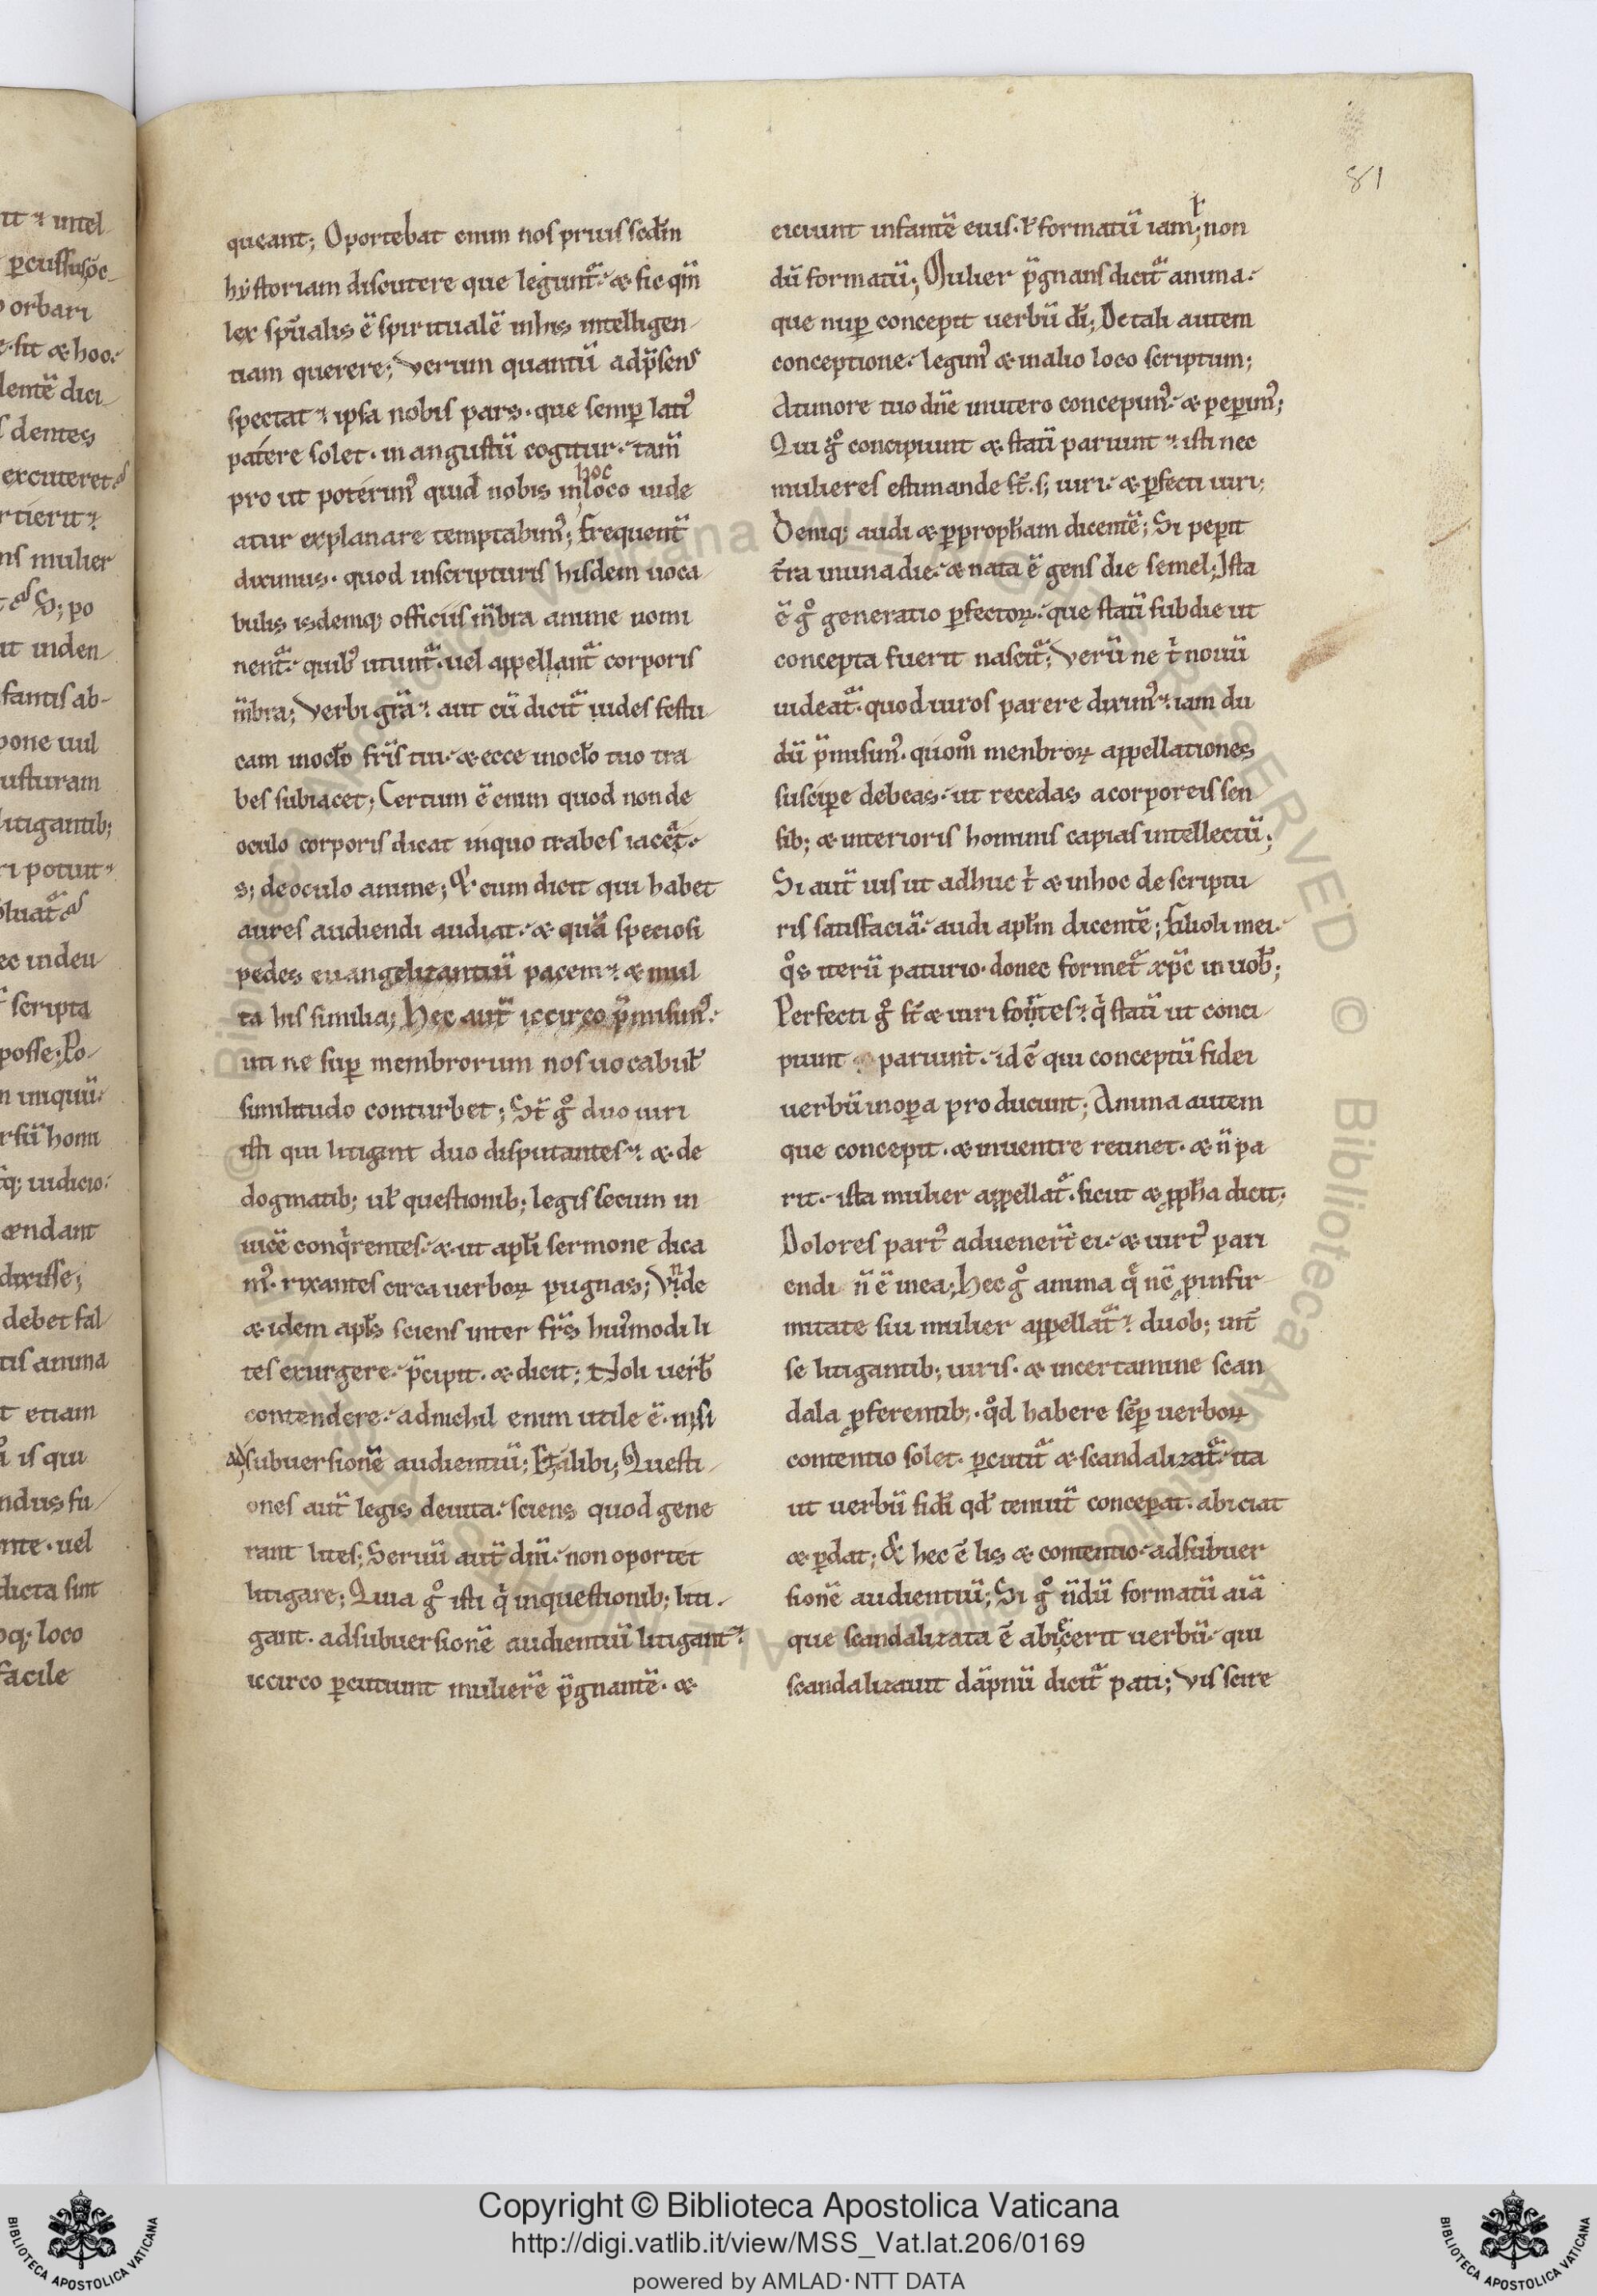 81
queant; Oportebat enim nos prius scd̄m
hystoriam discutere que legunt᷑. & sic qm̄
lex sp̄ualis ē spiritualē inhis intelligen
tiam querere; Verum quantū adp̄sens
spectat ipsa nobis pars. que semꝑ latiꝰ
patere solet. in angustū cogitur. tam̄
pro ut poterimꝰ quid nobis in hoc loco uide
atur explanare temptabimꝰ; frequent̄
diximus. quod inscripturis hisdem uoca
bulis isdemq; officiis m̄bra anime nomi
nent᷑. quibꝰ utunt᷑. uel appellant᷑ corporis
m̄bra; Verbi grā. aut cū dicit᷑ uides festu
cam inoclo frīs tui. & ecce inoclo tuo tra
bes subiacet; Certum ē enim quod non de
oculo corporis dicat inquo trabes iacet.
s; deoculo anime; Et cum dicit qui habet
aures audiendi audiat. & quā speciosi
pedes euangelizantiū pacem. & mul
ta his similia; Hec aut̄ iccirco p̄misimꝰ.
uti ne suꝑ membrorum nos uocabul̄
similitudo conturbet; St̄ gͦ duo uiri
isti qui litigant duo disputantes. & de
dogmatib; ul̄ questionib; legis secum in
uicē conqͥrentes. & ut apl̄i sermone dica
mꝰ. rixantes circa uerboꝝ pugnas; Vnde
& idem apl̄s sciens inter frs̄ huꝰmodi li
tes exurgere. p̄cipit. & dicit; Noli uerb̄
contendere. adnichil enim utile ē. nisi
ad subuersionē audientiū; Et alibi; Questi
ones aut̄ legis deuita. sciens quod gene
rant lites; Seruū aut̄ dn̄i. non oportet
litigare; Quia gͦ isti qͥ inquestionib; liti
gant. adsubuersionē audientiū litigant.
iccirco ꝑcutiunt mulierē p̄gnantē. &
eiciunt infantē eius. ul̄ formatū iam ul̄; non
dū formatū; Mulier p̄gnans dicit᷑ anima.
que nuꝑ concepit uerbū dī; De tali autem
conceptione. legimꝰ & inalio loco scriptum;
Atimore tuo dn̄e inutero concepimꝰ. & peꝑimꝰ;
Qui gͦ concipiunt & statī pariunt isti nec
mulieres estimande st̄. s; uiri. & ꝑfecti uiri;
Deniq; audi & ꝑprophetam dicentē; Si peꝑit
t̄ra inuna die. & nata ē gens die semel; Ista
ē gͦ generatio ꝑfectoꝝ. que statī subdie ut
concepta fuerit nascit᷑; Verū ne tͥ nouū
uideat᷑. quod uiros parere diximꝰ. iam du
dū p̄misimꝰ. quomͦ menbroꝝ appellationes
susciꝑe debeas. ut recedas acorporeis sen
sib; & interioris hominis capias intellectū;
Si aut̄ uis ut adhuc tͥ & inhoc de scriptu
ris satisfaciā. audi apl̄m dicentē; Filioli mei.
qͦs iterū paturio. donec formet᷑ xp̄c in uob̄;
Perfecti gͦ st̄ & uiri fortes. qͥ statī ut conci
piunt pariunt. id ē qui conceptū fidei
uerbū inoꝑa producunt; Anima autem
que concepit. & inuentre retinet. & n̄ pa
rit. ista mulier appellat᷑. sicut & ꝓph̄a dicit;
Dolores partꝰ aduenert̄ ei. & uirtꝰ pari
endi n̄ ē inea; Hec gͦ anima q̄ nc̄ ꝓ infir
mitate sui mulier appellat᷑. duob; int̄
se litigantib; uiris. & incertamine scan
dala ꝓferentib;. qͦd habere seꝑ uerboꝝ
contentio solet. ꝑcutit᷑ & scandalizat᷑. ita
ut uerbū fidī qd̄ tenuit̄ conceꝑat. abiciat
& ꝑdat; & hec ē lis & contentio. adsubuer
sionē audientiū; Si gͦ n̄dū formatū aīa
que scandalizata ē abiecerit uerbū. qui
scandalizauit dāpnū dicit᷑ pati; Vis scire
Copyright © Biblioteca Apostolica Vaticana
http://digi.vatlib.it/view/MSS_Vat.lat.206/0169
powered by AMLAD·NTT DATA
BIBLIOTECA APOSTOLICA VATICANA
BIBLIOTECA APOSTOLICA VATICANA